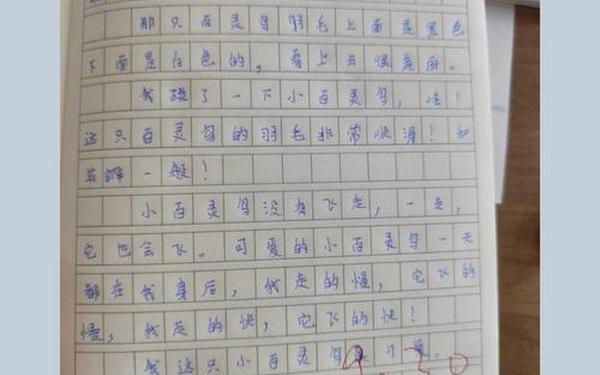 那只百灵鸟羽毛上面是黑色
下面是白色的，看上去很美丽。
我碰了一下小百灵鸟，哇！
这只百灵鸟的羽毛非常快滑！和
一般！
小百灵鸟没有飞走，一走，
它也会飞。可爱的小百灵鸟一天
都在我身后，我走的慢，它飞的
慢，我走的快，它飞的快！
我这只小百灵鸟可